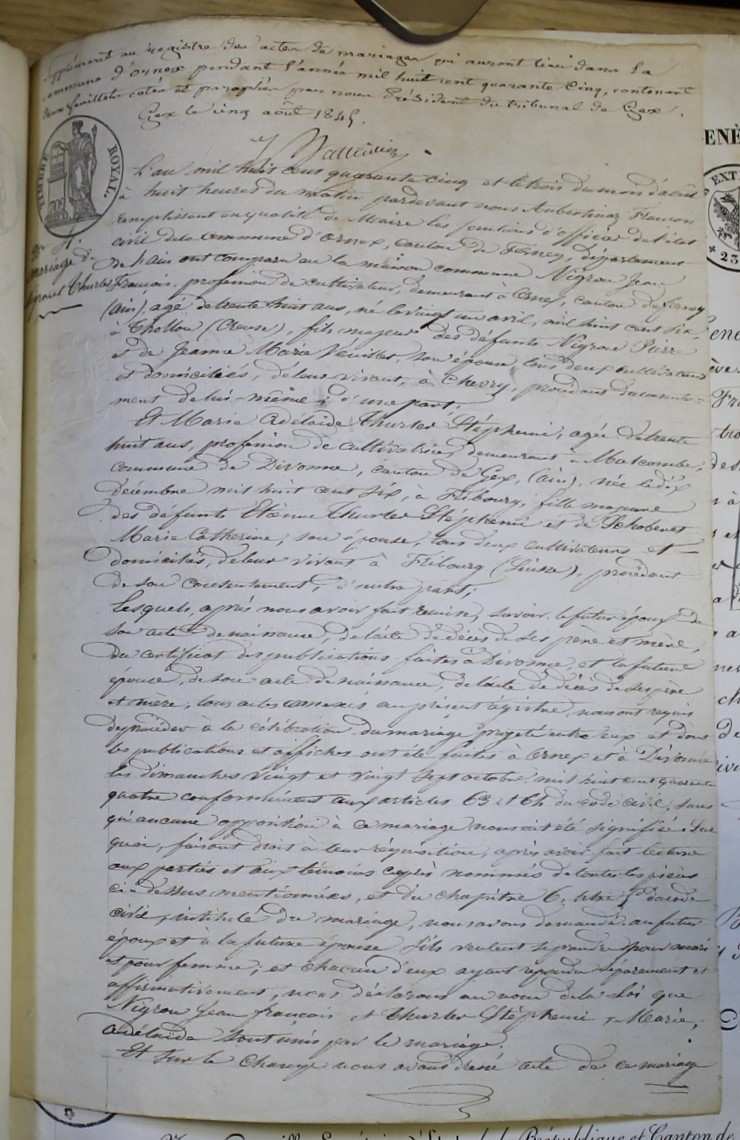 Supplément au registre des actes de mariages qui auront lieu dans la
commune d'Ornex pendant l'année mil huit cent quarante cinq, contenant
deux feuillets cotés et paraphés par nous Président du tribunal de Gex.
Gex le cinq août 1845.
TIMBRE ROYAL.
L'an mil huit cent quarante cinq et le trois du mois d'août
à huit heures du matin pardevant nous François
remplissant en qualité de Maire les fonctions d'officier de l'état
civil de la commune d'Ornex, canton de Ferney, département
de l'Ain ont comparu en la maison commune Nigrou Jean
mariage de
François, profession de cultivateur, demeurant à Ornex, canton de Ferney
(Ain), agé de trente huit ans, né le vingt un avril, mil huit cent six,
à Thollon (Cluse), fils majeur des défunts Nigrou Pierre
et de Jeanne Marie son épouse tous deux cultivateurs
et domiciliés, de leur vivant, à Chevry, procédant
ment de lui-même, d'une part,
Et Marie Adélaïde Thurler Stéphenie, agée de trente
huit ans, profession de cultivatrice, demeurant à
commune de Divonne, canton de Gex, (Ain), née le dix
décembre mil huit cent six, à Fribourg, fille majeure
des défunts Etienne Thurler Stéphenie et de
Marie Catherine, son épouse, tous deux cultivateurs et
domiciliés, de leur vivant à Fribourg (Suisse), procédant
de son consentement, d'autre part,
Lesquels, après nous avoir fait savoir, le futur époux de
son acte de naissance, de l'acte de décès de ses père et mère,
du certificat des publications faites à Divonne, et la future
épouse, de son acte de naissance, de l'acte de décès de ses père
et mère, tous actes annexés au présent registre, nous ont requis
de procéder à la célébration du mariage projeté entre eux et dont
les publications et affiches ont été faites à Ornex et à Divonne
les dimanches vingt et vingt sept octobre mil huit cent quarante
quatre conformément aux articles 63 et 64 du code civil, sans
qu'aucune opposition à ce mariage nous ait été signifiée. Sur
quoi, faisant droit à leur réquisition, après avoir fait lecture
aux parties et aux témoins après nommés de toutes les pièces
ci-dessus mentionnées, et du chapitre 6, titre du code
civil, intitulé Du mariage, nous avons demandé au futur
époux et à la future épouse s'ils veulent se prendre pour mari
et pour femme, et chacun d'eux ayant répondu séparément et
affirmativement, nous déclarons au nom de la Loi que
Nigrou Jean François et Thurler Stéphenie Marie,
Adélaïde sont unis par le mariage.
Et sur le champ nous avons dressé acte de ce mariage